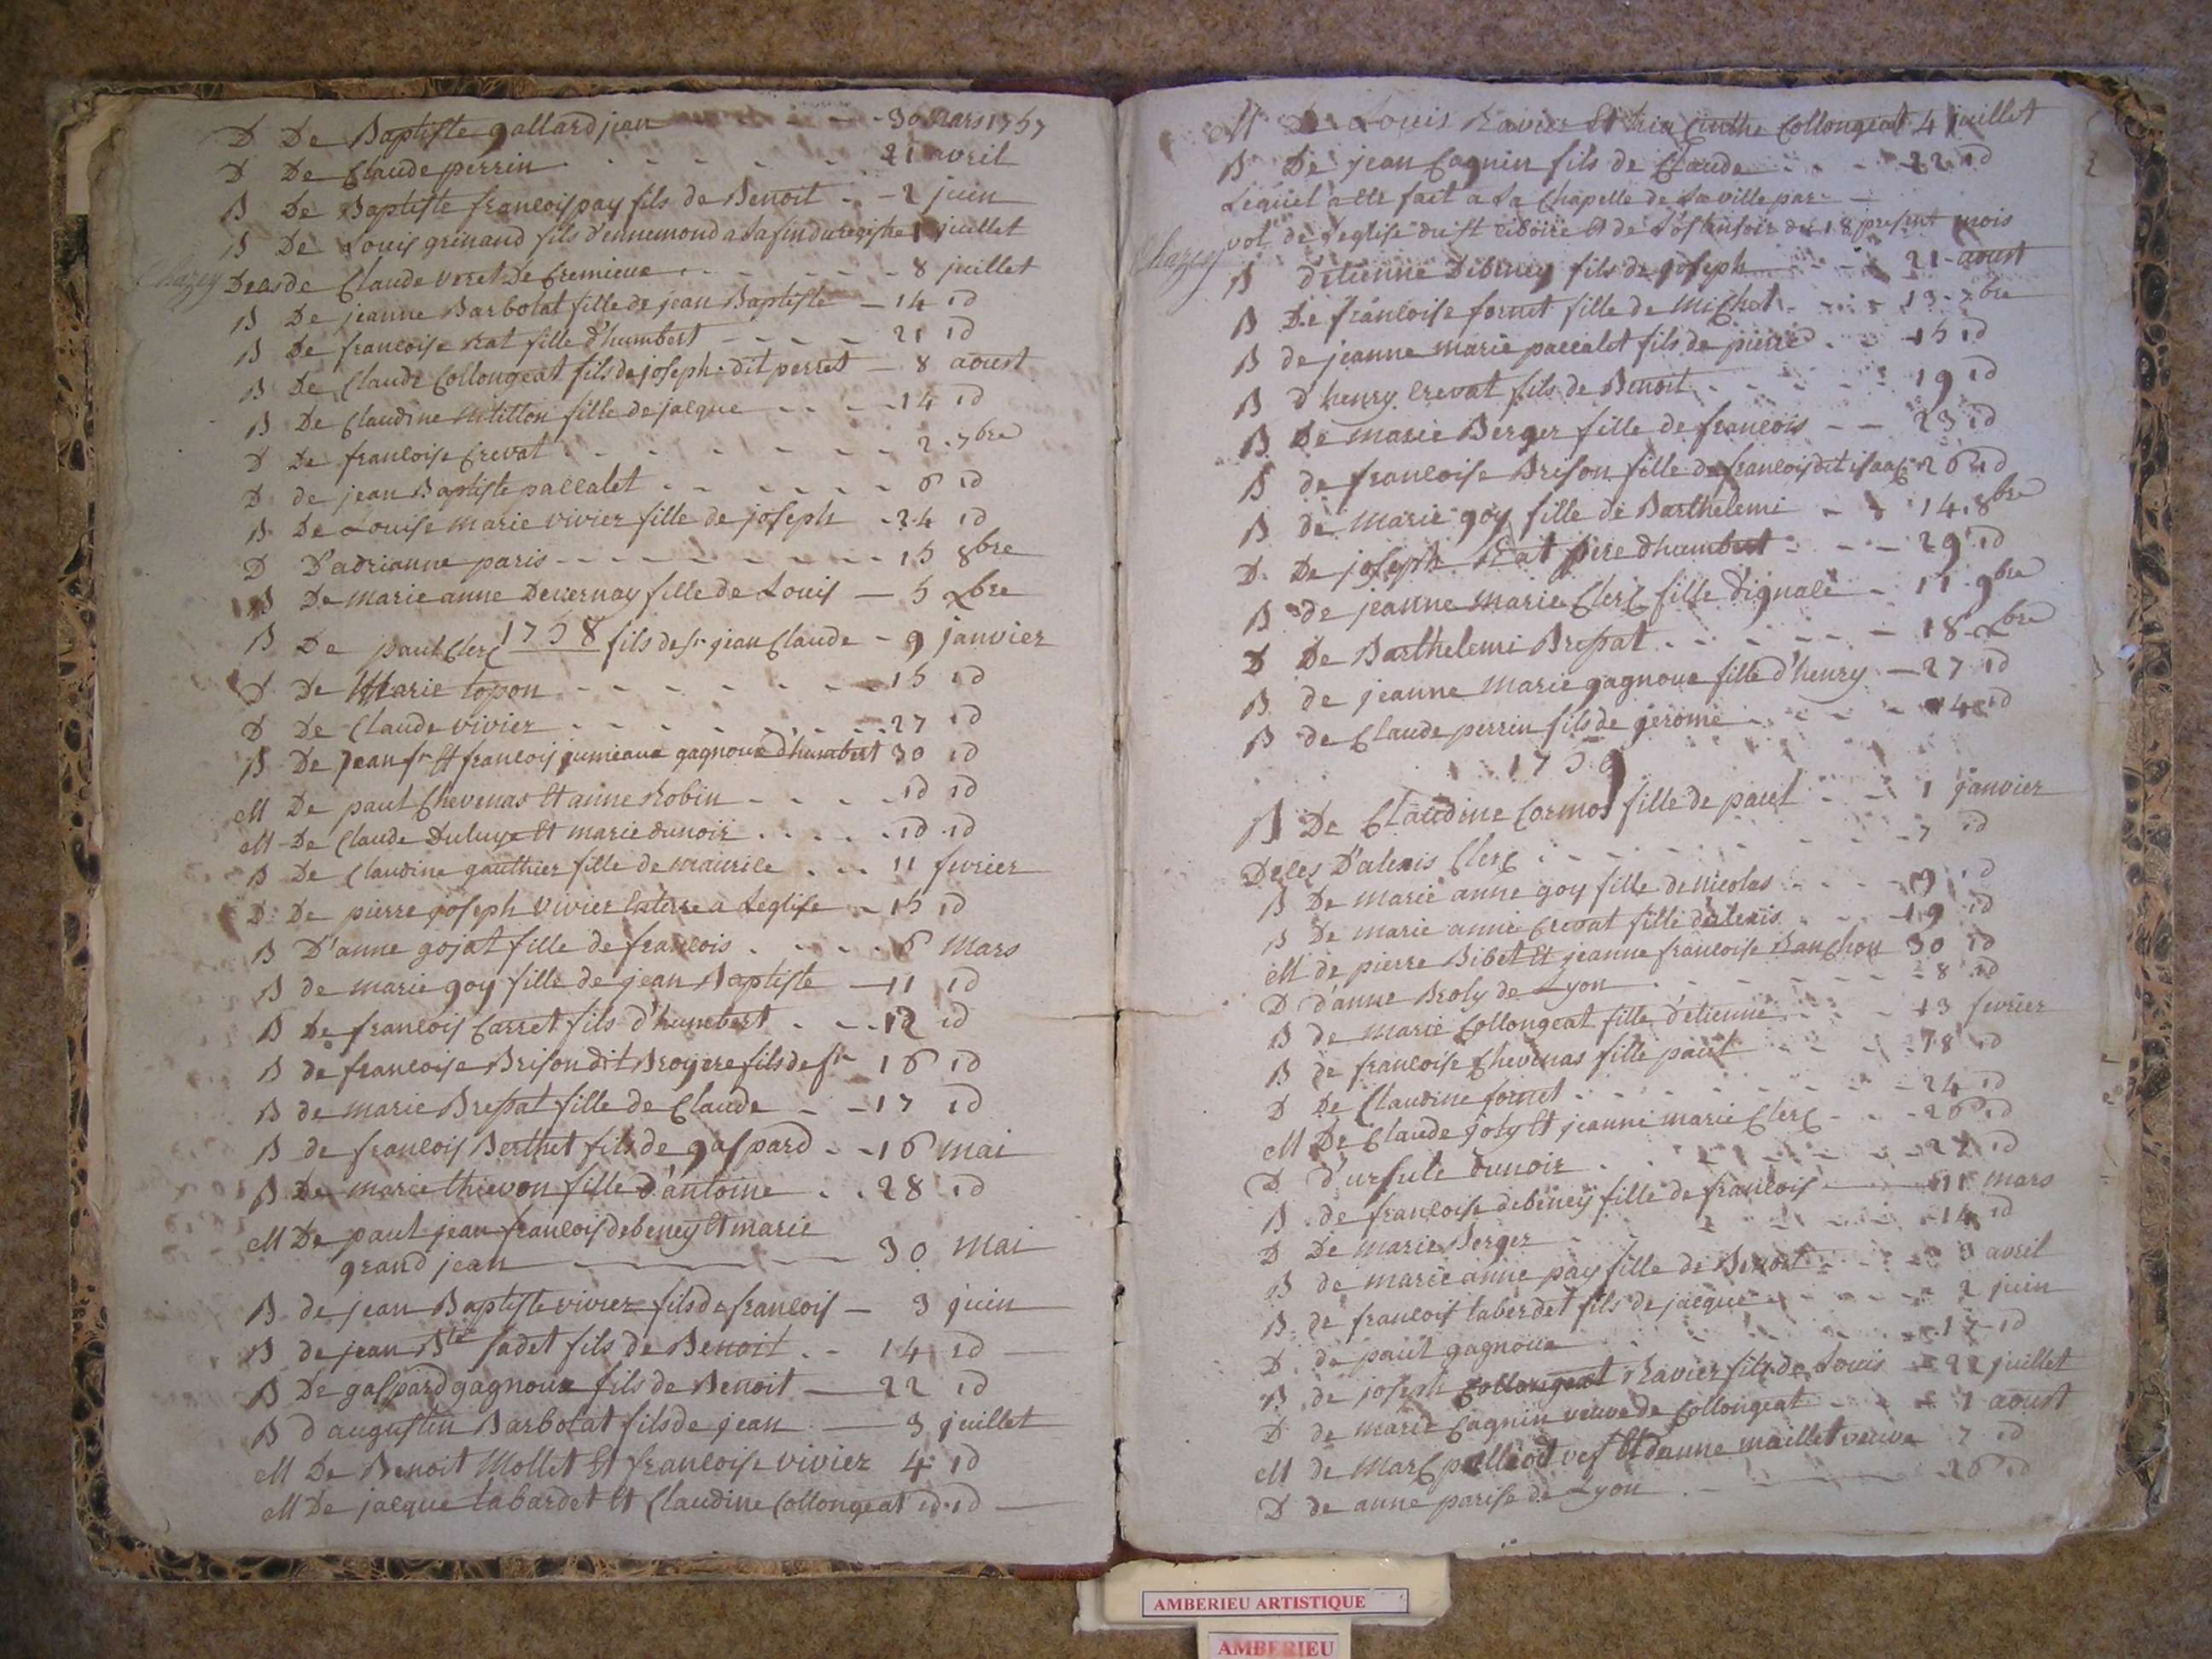 D De Baptiste gallard jean - - 30 Mars 1757
D De Claude perrin - - - - - - 21 avril
B De Baptiste francois pay fils de Benoit - - 2 juin
B De Louis grinand fils d'ennemond a la fin du registre 1 juillet
Chazey Deces de Claude veret De Cremieux - - - - 8 juillet
B De jeanne Barbolat fille de jean Baptiste - 14 id
B De francoise Rat fille d'humbert - - - - 21 id
B De Claude Collongeat fils de joseph dit perret - 8 aoust
B De Claudine Mitillon fille de jacque - - - - 14 id
D De francoise Crevat - - - - - - 2 7bre
D de jean Baptiste paccalet - - - - - - 6 id
B De Louise marie vivier fille de joseph - 24 id
D D'adrianne paris - - - - - - - - 15 8bre
B De marie anne Devernay fille de Louis - 5 xbre
1758
B De paul Clerc fils de sr jean Claude - 9 janvier
D De Marie topon - - - - - - - 15 id
D De Claude vivier - - - - - - - 27 id
B De Jean fr et francois jumeaux gagnoux d'humbert 30 id
M De paul Chevenas et anne Robin - - - - id id
M De Claude Duluye et marie dunoir - - - - id id
B De Claudine gauthier fille de maurice - - - 11 fevrier
D De pierre joseph vivier a Leglise - 15 id
B D'anne gojat fille de francois - - - - - 6 Mars
B de marie goy fille de jean Baptiste - 11 id
B De francois Carret fils d'humbert - - - 12 id
B de francoise Brison dit Broyere fils de fr 16 id
B de marie Bressat fille de Claude - - 17 id
B de francois Berthet fils de gaspard - - 16 mai
B De marie thievon fille d'antoine - - 28 id
M De paul jean francois debeney et marie
grand jean - - - - 30 Mai
B de jean Baptiste vivier fils de francois - 3 juin
B de jean Bte sadet fils de Benoit - - 14 id
B De gaspard gagnoux fils de Benoit - 22 id
B d'augustin Barbolat fils de jean - 3 juillet
M De Benoit Mollet et francoise vivier 4 id
M De jacque tabardet et Claudine Collongeat id id
M De Louis Ravier et hia Cinthe Collongeat 4 juillet
B De jean Cagnin fils de Claude - - - 22 id
Lequel a ete fait a La Chapelle de La ville par
vol de Leglise du st ciboire et de L'ostensoir du 18 present mois
Chazey B d'etienne Debeney fils de joseph - - - 21 aoust
B De francoise fornet fille de Michel - - - 13 7bre
B de jeanne marie paccalet fils de pierre - - 15 id
B d'henry Crevat fils de Benoit - - - - 19 id
B De marie Berger fille de francois - - 23 id
B de francoise Brison fille de francois dit isaac 26 id
B de Marie goy fille de Barthelemi - - 14 8bre
D De joseph Rat pere d'humbert - - - 29 id
B de jeanne marie Clerc fille d'ignace - 11 9bre
D De Barthelemi Bressat - - - - - 18 xbre
B de jeanne Marie gagnoux fille d'henry - 27 id
B de Claude perrin fils de jerome - - - - 4 id
1759
B De Claudine Cormos fille de paul - - 1 janvier
Deces D'alexis Clerc - - - - - - 7 id
B De marie anne goy fille de Nicolas - - - 9 id
B De marie anne Crevat fille d'alexis - - - 19 id
M de pierre Bibet et jeanne francoise Ranchon 30 id
D d'anne Broly de Lyon - - - - - - 8 id
B de marie Collongeat fille d'etienne - - - 13 fevrier
B de francoise Chevenas fille paul - - - - 18 id
D De Claudine fornet - - - - - - - 24 id
M De Claude joly et jeanne marie Clerc - - - 26 id
D D'ursule dunoir - - - - - - - 27 id
B de francoise debeney fille de francois - 11 mars
D De marie Berger - - - - - - 14 id
B de marie anne pay fille de Benoit - - - - 3 avril
B de francois tabardet fils de jacque - - - - 2 juin
D de paul gagnoux - - - - - - 17 id
B de joseph Ravier fils de Louis - 22 juillet
D de marie Cagnin veuve de Collongeat - - - 1 aoust
M de Marc vef et d'anne maillet veuve 7 id
D de anne parise de Lyon - - - - - 26 id
AMBERIEU ARTISTIQUE
AMBERIEU